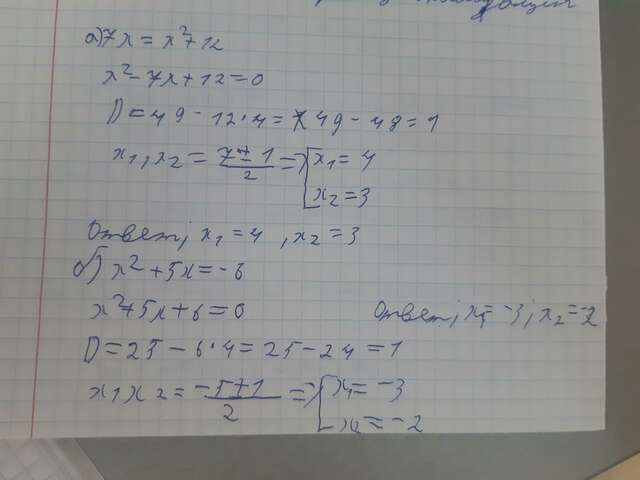 а) 7x = x²+12
x²-7x+12=0
D=49-12·4=49-48=1
x₁,x₂ = (7±1)/2 ⇒ [x₁=4
x₂=3
Ответ; x₁=4, x₂=3
б) x²+5x=-6
x²+5x+6=0
Ответ; x₁=-3; x₂=-2
D=25-6·4=25-24=1
x₁x₂ = (-5±1)/2 ⇒ [x₁=-3
x₂=-2